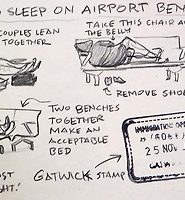 SLEEP ON AIRPORT BEN
COUPLES LEAN
TOGETHER
TAKE THIS CHAIR A
THE BELLY
REMOVE SHO
TWO BENCHES
TOGETHER
MAKE AN
ACCEPTABLE
BED
GATWICK STAMP
25 NOV